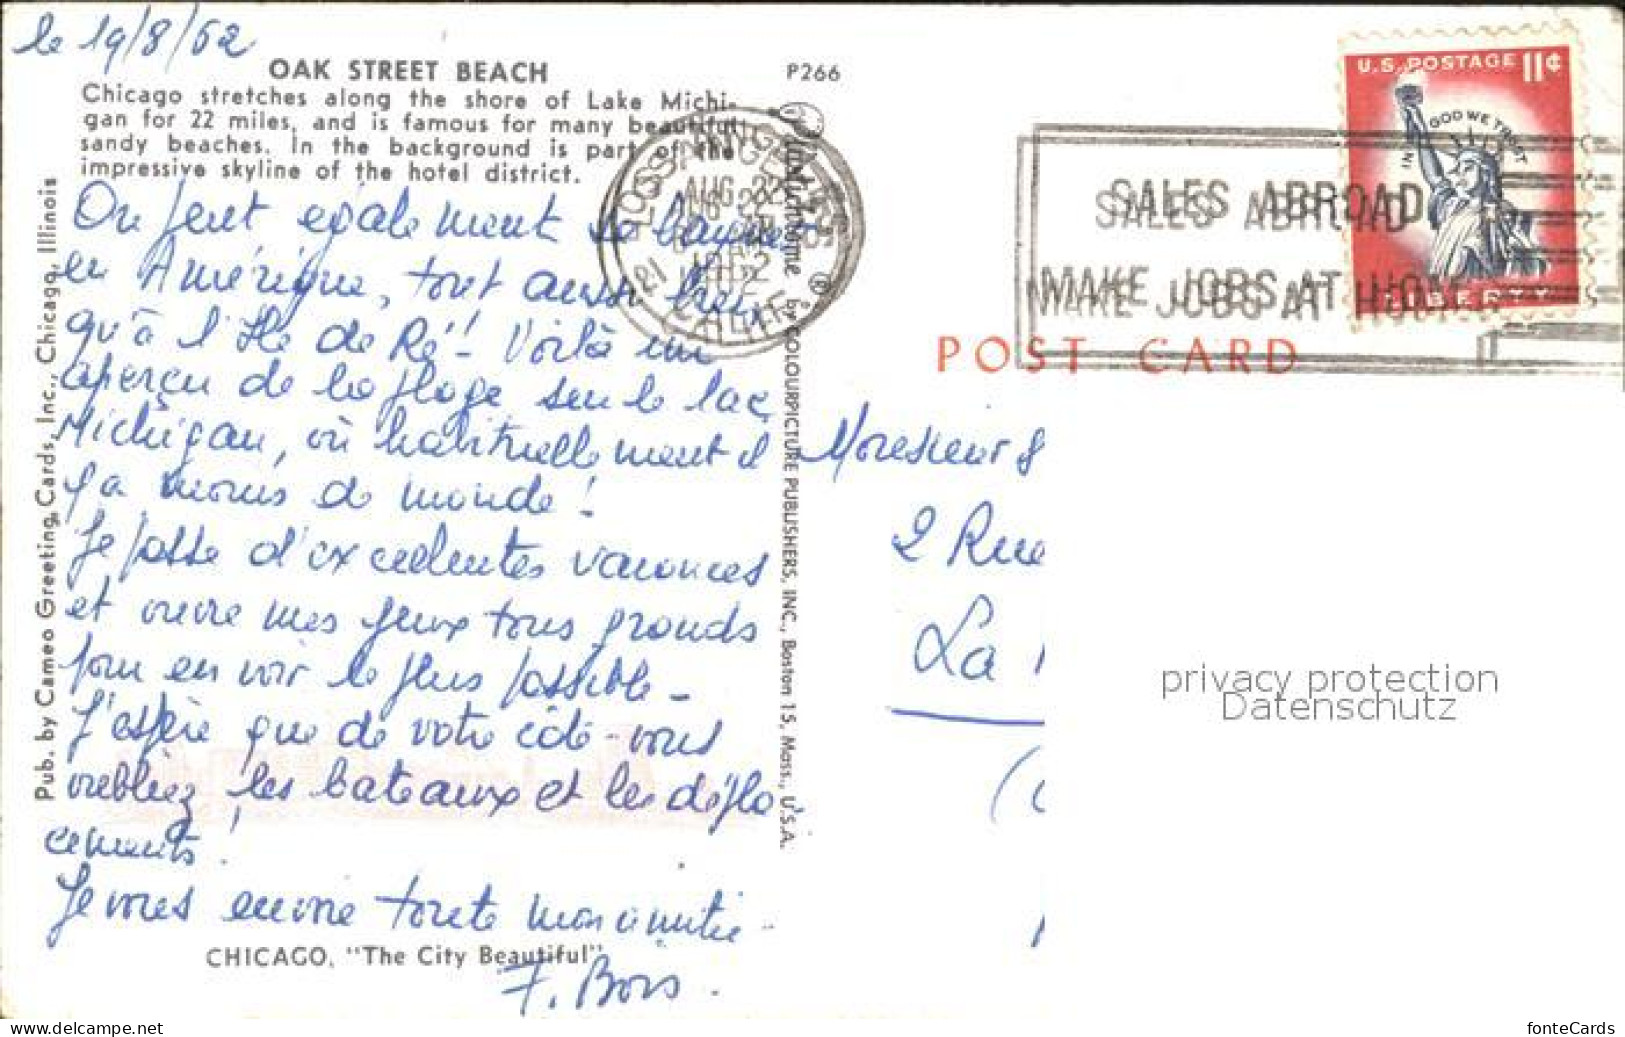 le 19/8/62
OAK STREET BEACH
P266
Chicago stretches along the shore of Lake Michi-
gan for 22 miles, and is famous for many beautiful
sandy beaches. In the background is part of the
impressive skyline of the hotel district.
Pub. by Cameo Greeting Cards, Inc., Chicago, Illinois
On peut également se baigner
en Amérique, tout aussi bien,
qu'à l'Ile de Ré! Voilà un
aperçu de la plage sur le lac
Michigan, où habituellement il
y a moins de monde!
Je passe d'excellentes vacances
et ouvre mes yeux tous grands
pour en voir le plus possible-
J'espère que de votre côté-vous
oubliez les bateaux et les dépla
cements!
Je vous envoie toute mon amitié
F. Bois.
CHICAGO, "The City Beautiful"
Plastichrome ® by COLOURPICTURE PUBLISHERS, INC., Boston 15, Mass., U.S.A.
LOS ANGELES
AUG 22
1962
CALIF.
SALES ABROAD
MAKE JOBS AT HOME
U.S. POSTAGE 11¢
IN GOD WE TRUST
LIBERTY
POST CARD
Monsieur
2 Rue
La
(
privacy protection
Datenschutz
www.delcampe.net
fonteCards